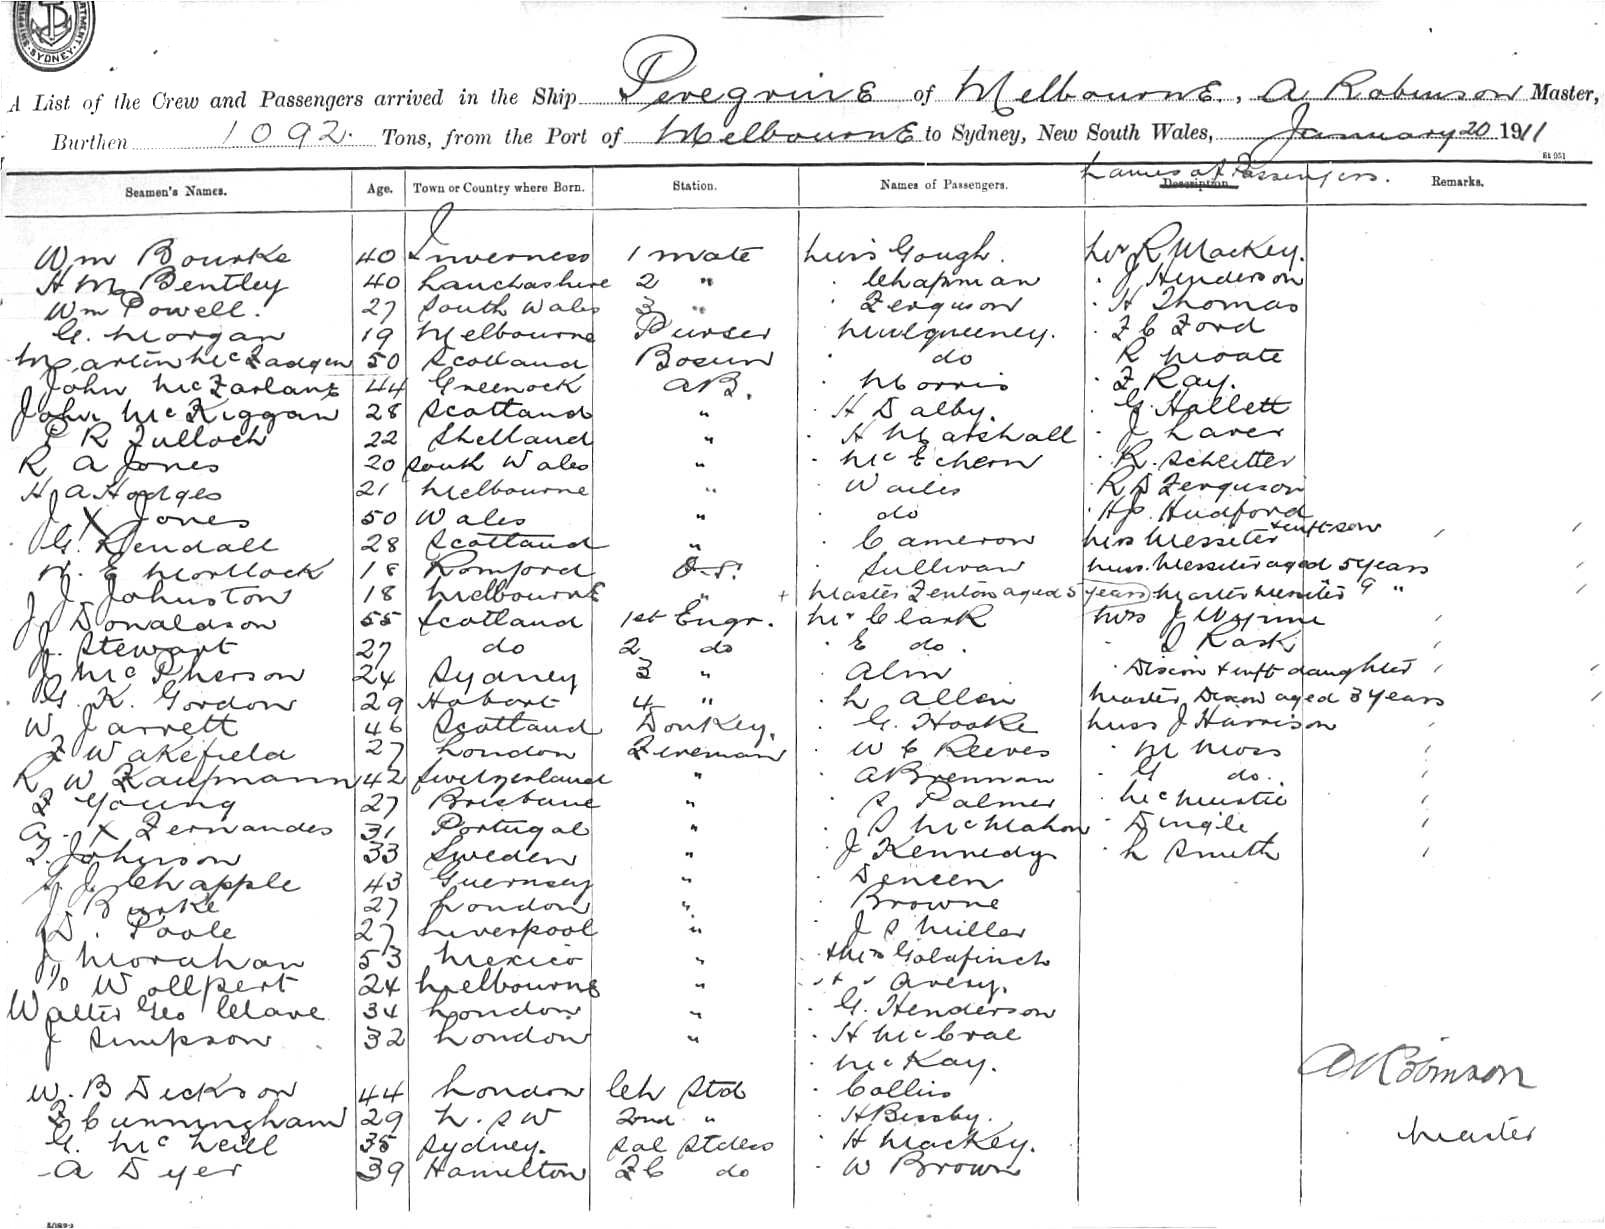 SYDNEY
A List of the Crew and Passengers arrived in the Ship Peregrine of Melbourne, A Robinson Master,
Burthen 1092 Tons, from the Port of Melbourne to Sydney, New South Wales, January 20 1911
St 951
Seamen's Names. Age. Town or Country where Born. Station. Names of Passengers. Names of Passengers. Description Remarks.
Wm Bourke 40 Inverness 1 mate Miss Gough. Mr R Mackey.
H M Bentley 40 Lanchashire 2 " Chapman J Henderson
Wm Powell. 27 South Wales 3 " Ferguson H Thomas
G. Morgan 19 Melbourne Purser Mulqueeney. F C Ford
Martin McFadgen 50 Scotland Bosun do R Moate
John McFarlane 44 Greenock AB. Morris F Ray.
John McKiggan 28 Scotland " H Dalby. G. Hallett
P R Tulloch 22 Shetland " H Marshall J Laver
R A Jones 20 South Wales " McEchern R. Schlitter
H A Hodges 21 Melbourne " Wailes R D Ferguson
J X Jones 50 Wales " do H J. Hudford
G. Kendall 28 Scotland " Cameron Mrs Messiter + inft son
E Mortlock 18 Romford O.S. Sullivan Miss. Messiter aged 5 years
J. Johnston 18 Melbourne " + Master Fenton aged 5 years Master Messiter 9 "
J Donaldson 55 Scotland 1st Engr. Mr Clark Mrs J Wynne
J. Stewart 27 do 2 do E do. Rask
J McPherson 24 Sydney 3 " Alin Dixon + inft daughter
G. K. Gordon 29 Hobart 4 " L Allen Master Dixon aged 3 years
W Jarrett 46 Scotland Donkey. G. Hooke Miss J Harrison
F Wakefield 27 London Fireman W C Reeves M Moss
R W Kaufmann 42 Switzerland " A Brennan G do.
F Young 27 Brisbane " S Palmer McMurtie
A. X Fernandes 31 Portugal " S McMahon Dingle
T. Johnson 33 Sweden " J Kennedy L Smith
J. Chapple 43 Guernsey " Deneen
J Burke 27 London " Browne
D. Poole 27 Liverpool " J S Miller
J Morahan 53 Mexico " + Mrs Goldfinch
W Ollpert 24 Melbourne " + " Avery.
Walter Geo Clave 34 London " G. Henderson
J Simpson 32 London " H McCrae
McKay.
A Robinson
W. B Dickson 44 London Ch Std Collins
F Cunningham 29 N.S W 2nd " H Bessby.
G. McNeill 35 Sydney. Sal Stdess H Mackey.
Master
A Dyer 39 Hamilton F C do W Brown